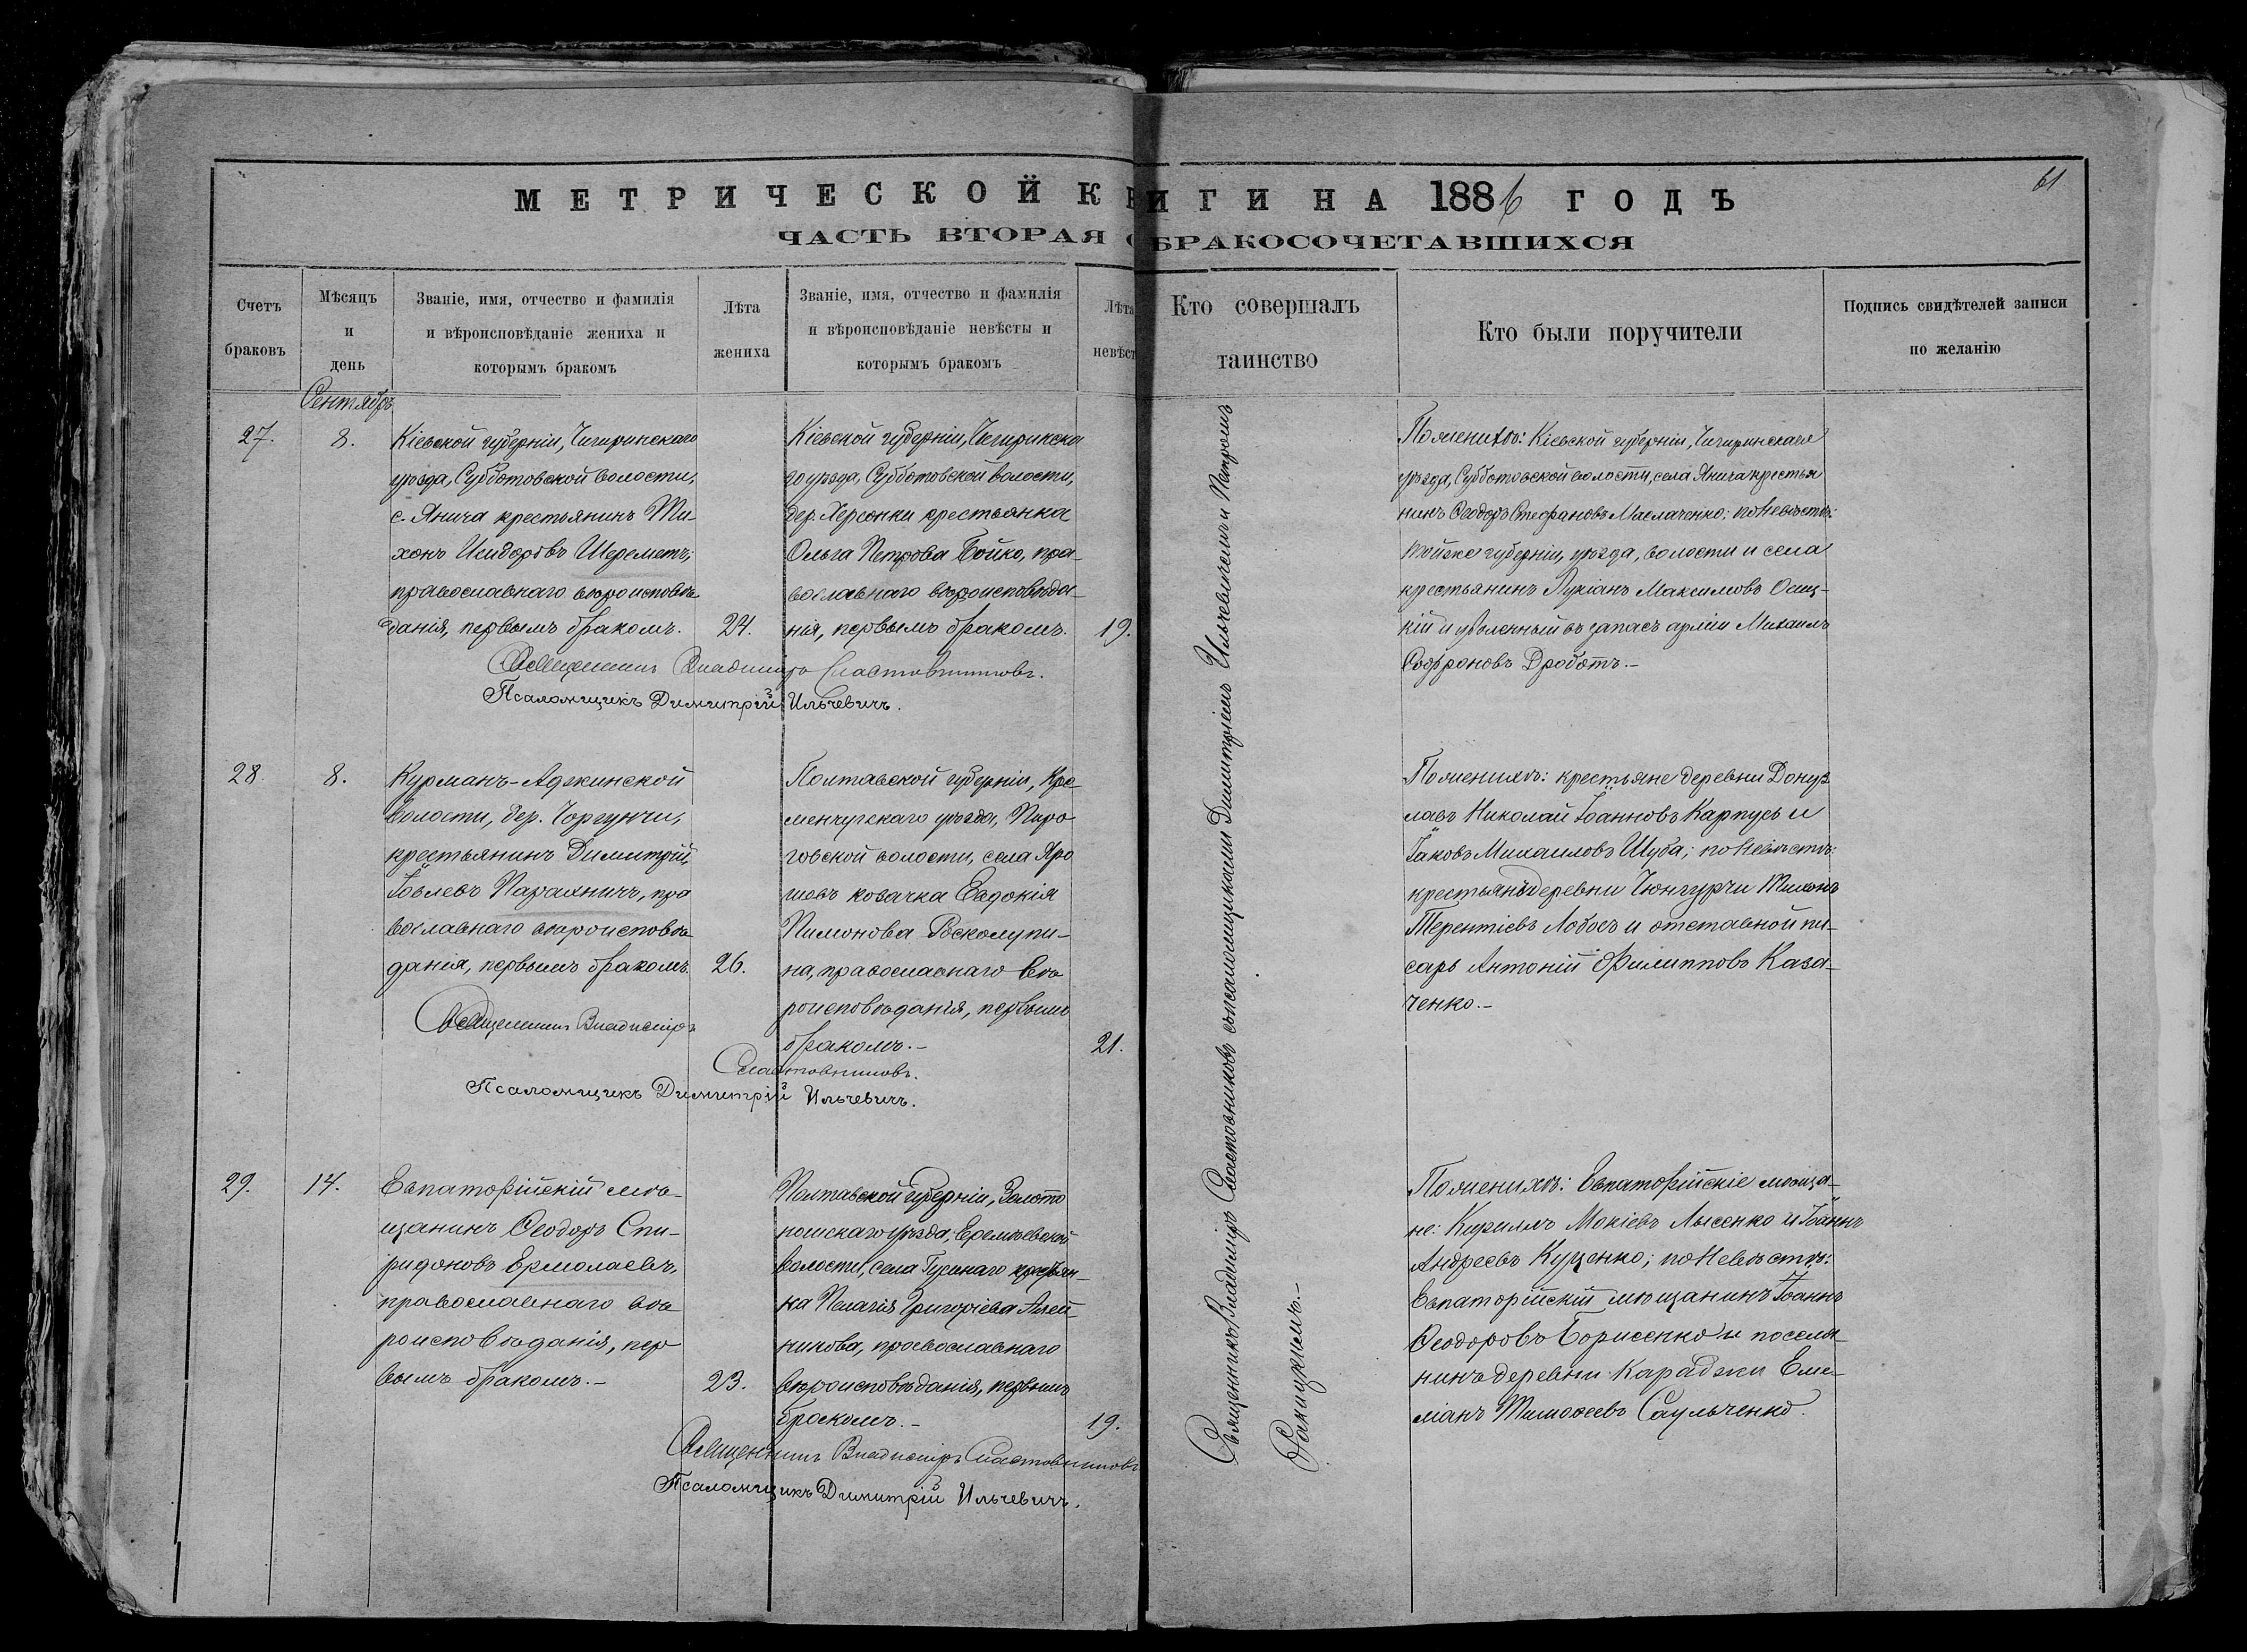 МЕТРИЧЕСКОЙ КНИГИ НА 1886 ГОДЪ
61
ЧАСТЬ ВТОРАЯ О БРАКОСОЧЕТАВШИХСЯ
Счетъ
браковъ
Мѣсяцъ
и
день
Званіе, имя, отчество и фамилія
и вѣроисповѣданіе жениха и
которымъ бракомъ
Лѣта
жениха
Званіе, имя, отчество и фамилія
и вѣроисповѣданіе невѣсты и
которымъ бракомъ
Лѣта
невѣст
Кто совершалъ
таинство
Кто были поручители
Подпись свидѣтелей записи
по желанію
Сентябрь
27.
8.
Кіевской губерніи, Чигиринскаго
уѣзда, Субботовской волости,
с. Янича крестьянинъ Ти-
хонъ Исидоровъ Шереметъ,
православнаго вѣроисповѣ-
данія, первымъ бракомъ.
24.
Кіевской губерніи, Чигиринска
го уѣзда, Субботовской волости,
дер. Херсонки крестьянка
Ольга Петрова Бойко, пра-
вославнаго вѣроисповѣда-
нія, первымъ бракомъ.
19.
Священникъ Владиміръ Сластовниковъ.
Псаломщикъ Димитрій Ильчевичъ.
По женихѣ: Кіевской губерніи, Чигиринскаго
уѣзда, Субботовской волости, села Янича крестья
нинъ Ѳеодоръ Стефановъ Маслаченко; по невѣстѣ:
той же губерніи, уѣзда, волости и села
крестьянинъ Лукіанъ Максимовъ Осиц-
кій и уволенный въ запасъ арміи Михаилъ
Софроновъ Дроботъ.-
28.
8.
Курманъ-Аджинской
волости, дер. Чоргунчи,
крестьянинъ Димитрій
Іовлевъ Парахничъ, пра
вославнаго вѣроисповѣ-
данія, первымъ бракомъ.
26.
Полтавской губерніи, Кре-
менчугскаго уѣзда, Пиро
говской волости, села Яро
шевъ козачка Евдокія
Пимонова Росколупи-
на, православнаго вѣ
роисповѣданія, первымъ
бракомъ.-
21.
Священникъ Владиміръ
Сластовниковъ.
Псаломщикъ Димитрій Ильчевичъ.
По женихѣ: крестьяне деревни Донуз
лавъ Николай Іоанновъ Карпусь и
Іаковъ Михаиловъ Шуба; по невѣстѣ:
крестьянинъ деревни Чюнгурчи Тихонъ
Терентіевъ Лобосъ и отставной пи-
сарь Антоній Филипповъ Каза-
ченко.-
29.
14.
Евпаторійскій мѣ-
щанинъ Ѳеодоръ Спи-
ридоновъ Ермолаевъ,
православнаго вѣ
роисповѣданія, пер
вымъ бракомъ.-
23.
Полтавской губерніи, Золото
ношскаго уѣзда, Еремѣевской
волости, села Гусинаго крестьян-
ка Пелагія Григоріева Алей-
никова, православнаго
вѣроисповѣданія, первымъ
бракомъ.-
19.
Священникъ Владиміръ Сластовниковъ
Псаломщикъ Димитрій Ильчевичъ.
По женихѣ: Евпаторійскіе мѣща-
не: Кириллъ Мокіевъ Лысенко и Іоаннъ
Андреевъ Куценко; по невѣстѣ:
Евпаторійскій мѣщанинъ Іоаннъ
Ѳеодоровъ Борисенко и поселя-
нинъ деревни Караджи Еми-
ліанъ Тимоѳеевъ Саульченко.
Священникъ Владиміръ Сластовниковъ съ псаломщиками Димитріемъ Ильчевичемъ и Петромъ
Ракицкимъ.-